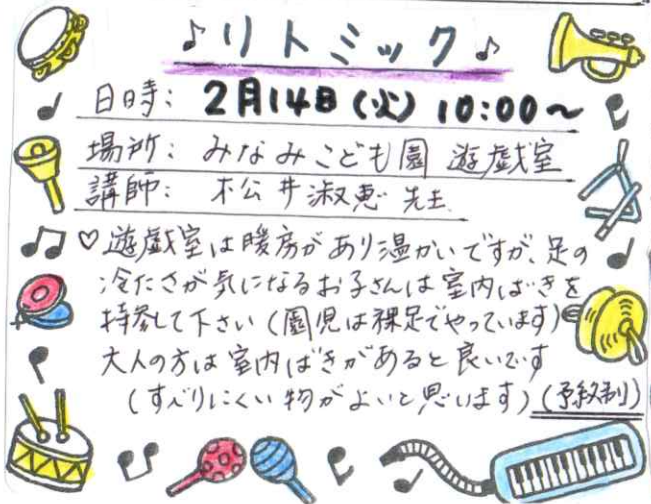 ♪リトミック♪
日時: 2月14日(火) 10:00~
場所: みなみこども園 遊戯室
講師: 松井淑恵 先生
♡遊戯室は暖房があり温かいですが、足の
冷たさが気になるお子さんは室内ばきを
持参して下さい(園児は裸足でやっています)
大人の方は室内ばきがあると良いです
(すべりにくい物がよいと思います)(予約制)